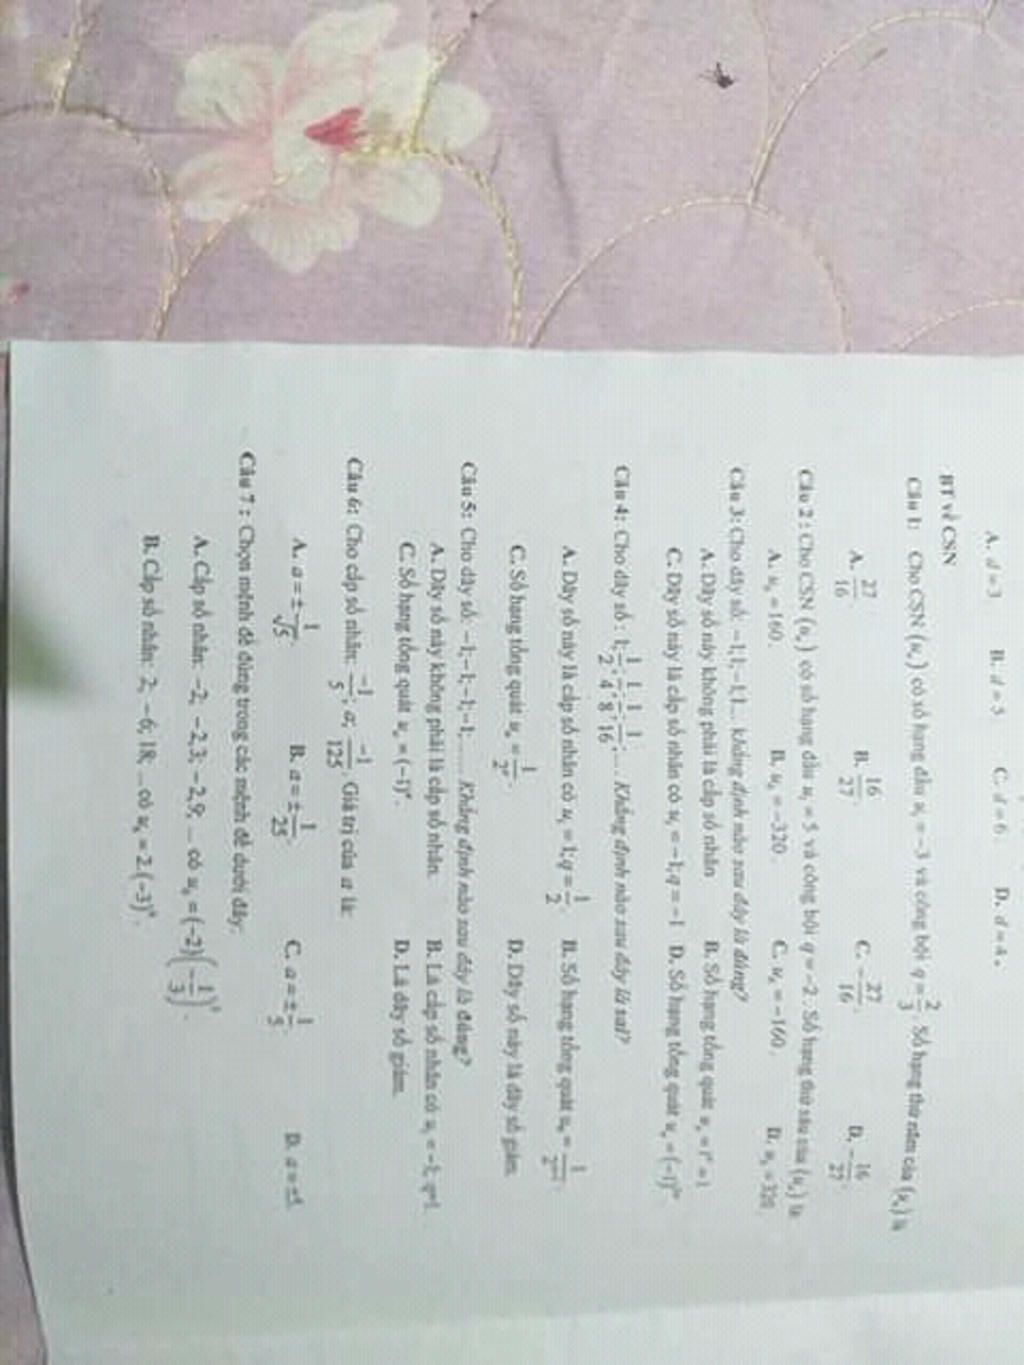 A. d = 3 B. d = 5 C. d = 6. D. d = 4.
BT về CSN
Câu 1: Cho CSN (uₙ) có số hạng đầu u₁ = −3 và công bội q = 2/3. Số hạng thứ năm của (uₙ) là
A. 27/16. B. 16/27. C. −27/16. D. −16/27.
Câu 2 : Cho CSN (uₙ) có số hạng đầu u₁ = 5 và công bội q = −2. Số hạng thứ sáu của (uₙ) là:
A. u₆ = 160. B. u₆ = −320. C. u₆ = −160. D. u₆ = 320.
Câu 3: Cho dãy số: −1;1;−1;1... Khẳng định nào sau đây là đúng?
A. Dãy số này không phải là cấp số nhân B. Số hạng tổng quát uₙ = 1ⁿ = 1
C. Dãy số này là cấp số nhân có u₁ = −1; q = −1 D. Số hạng tổng quát uₙ = (−1)²ⁿ
Câu 4: Cho dãy số : 1; 1/2; 1/4; 1/8; 1/16; ... . Khẳng định nào sau đây là sai?
A. Dãy số này là cấp số nhân có u₁ = 1; q = 1/2. B. Số hạng tổng quát uₙ = 1/2ⁿ⁻¹.
C. Số hạng tổng quát uₙ = 1/2ⁿ. D. Dãy số này là dãy số giảm.
Câu 5: Cho dãy số: −1;−1;−1;−1;... Khẳng định nào sau đây là đúng?
A. Dãy số này không phải là cấp số nhân. B. Là cấp số nhân có u₁ = −1; q=1.
C. Số hạng tổng quát uₙ = (−1)ⁿ. D. Là dãy số giảm.
Câu 6: Cho cấp số nhân: −1/5; a; −1/125. Giá trị của a là:
A. a = ±1/√5. B. a = ±1/25. C. a = ±1/5. D. a = ±5.
Câu 7 : Chọn mệnh đề đúng trong các mệnh đề dưới đây.
A. Cấp số nhân: −2; −2,3; −2,9; ... có u₆ = (−2)(−1/3)⁶.
B. Cấp số nhân: 2; −6; 18; ... có u₆ = 2.(−3)⁶.